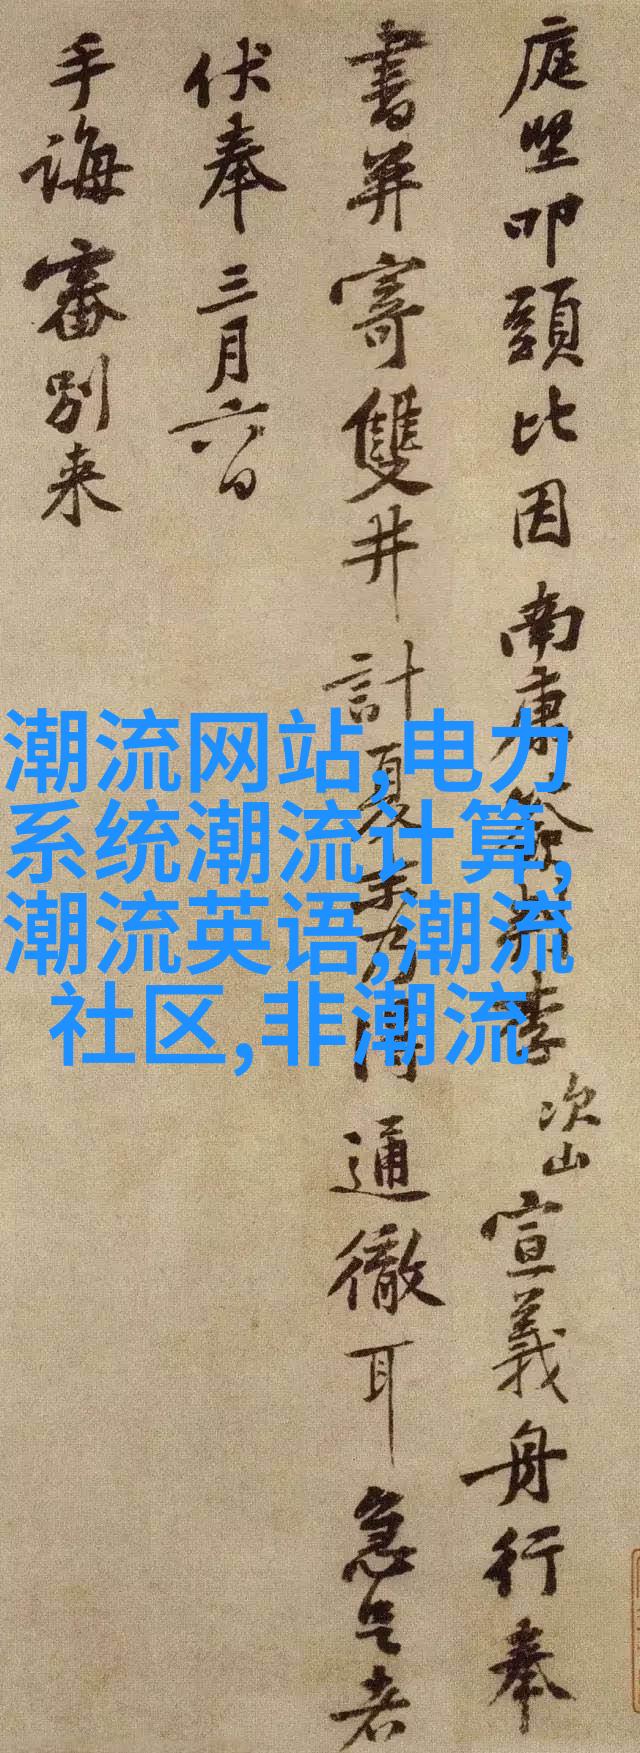 庭堅叩頭比因南康簽判李次山宣義舟行奉
書并寄雙井計夏末乃得通徹耳急足者
伏奉三月六日
手誨審別来
潮流网站,电力
系统潮流计算,
潮流英语,潮流
社区,非潮流